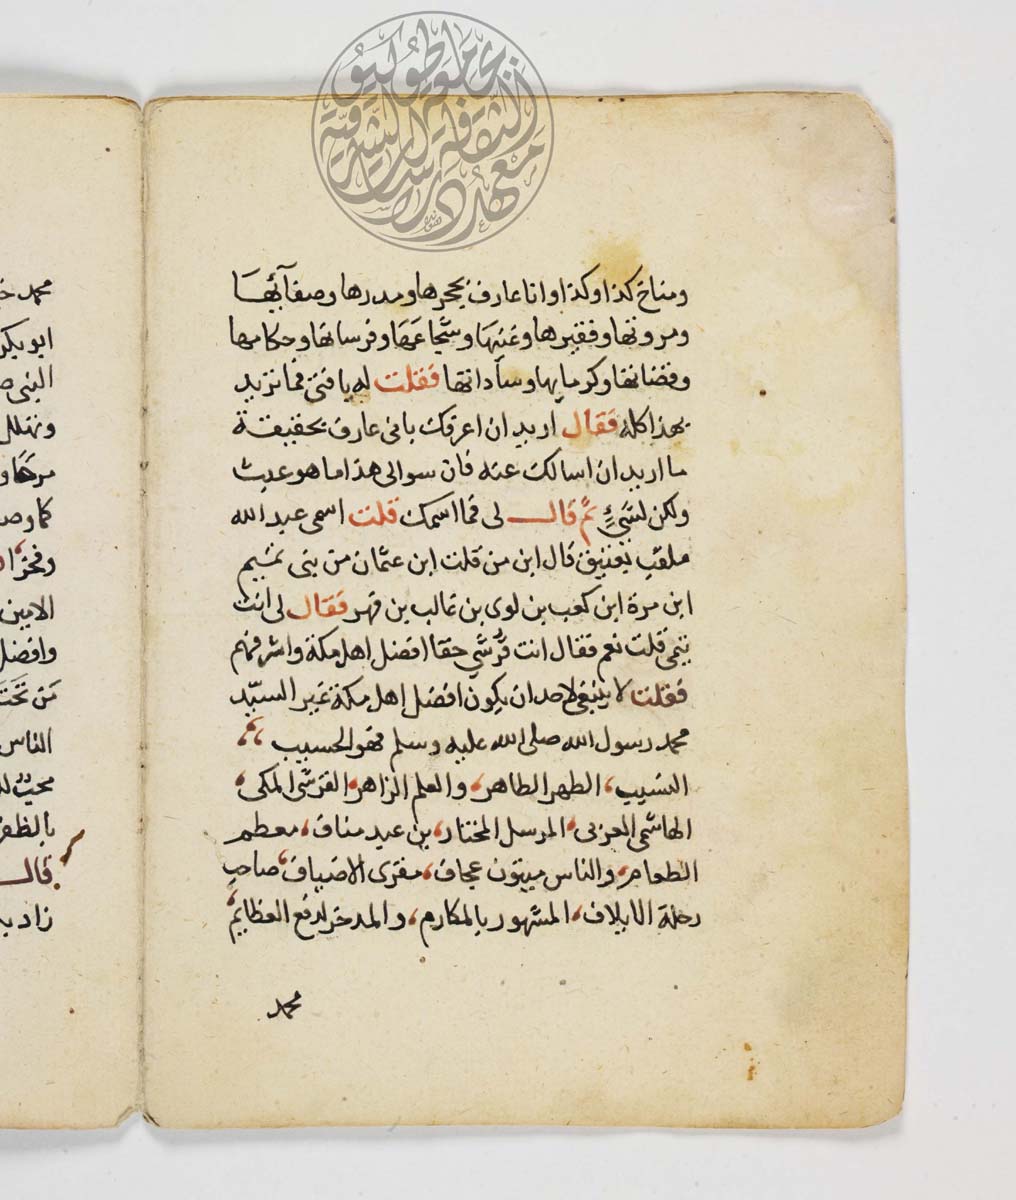 ومناخ كذا وكذا وانا عارف بحجرها ومدرها وصفآئها
ومروتها وفقيرها وغنيها وشجاعها وفرسانها وحكامها
وقضاتها وكرمايها وساداتها فقلت له يا فتى فما تريد
بهذا كله فقال اريد ان اعرفك بانى عارف بحقيقة
ما اريد ان اسالك عنه فان سوالى هذا ما هو عبث
ولكن لشيءٍ ثم قال لى فما اسمك قلت اسمى عبد الله
ملقب بعتيق قال ابن من قلت ابن عثمان من بنى تميم
ابن مرة ابن كعب بن لوى بن غالب بن فهر فقال لى انت
تيمى قلت نعم فقال انت قرشي حقا افضل اهل مكة واشرفهم
فقلت لا ينبغى لاحد ان يكون افضل اهل مكة غير السيد
محمد رسول الله صلى الله عليه وسلم فهو الحسيب
النسيب، الطهر الطاهر، والعلم الزاهر، القرشى المكى،
الهاشمى العربى، المرسل المختار، بن عبد مناف، مطعم
الطعام، والناس ميتون عجاف، مقرى الاضياف، صاحب
رحلة الايلاف، المشهور بالمكارم، والمدخر لدفع العظايم،
محمد
ابو بكر
النبى
وتهلل
كما
الامين
وافضل
الناس
قال